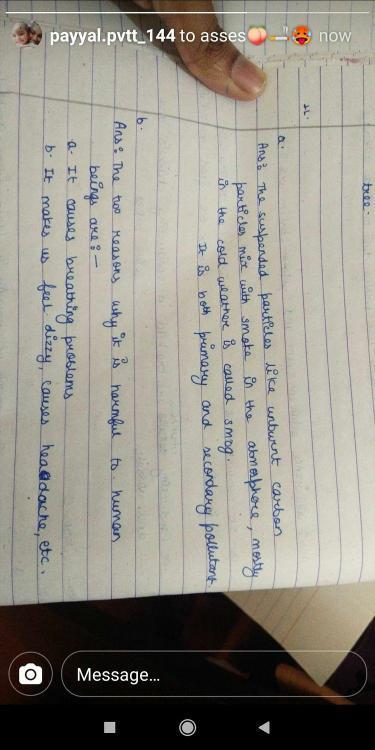 payyal.pvtt_144 to asses🍑🚬🥵 now
tree.
4.
a.
Ans: The suspended particles like unburnt carbon
particles mix with smoke in the atmosphere, mostly
in the cold weather is called smog.
It is both primary and secondary pollutant
b.
Ans: The two reasons why it is harmful to human
beings are:-
a. It causes breathing problems
b. It makes us feel dizzy, causes headache, etc.
Message...